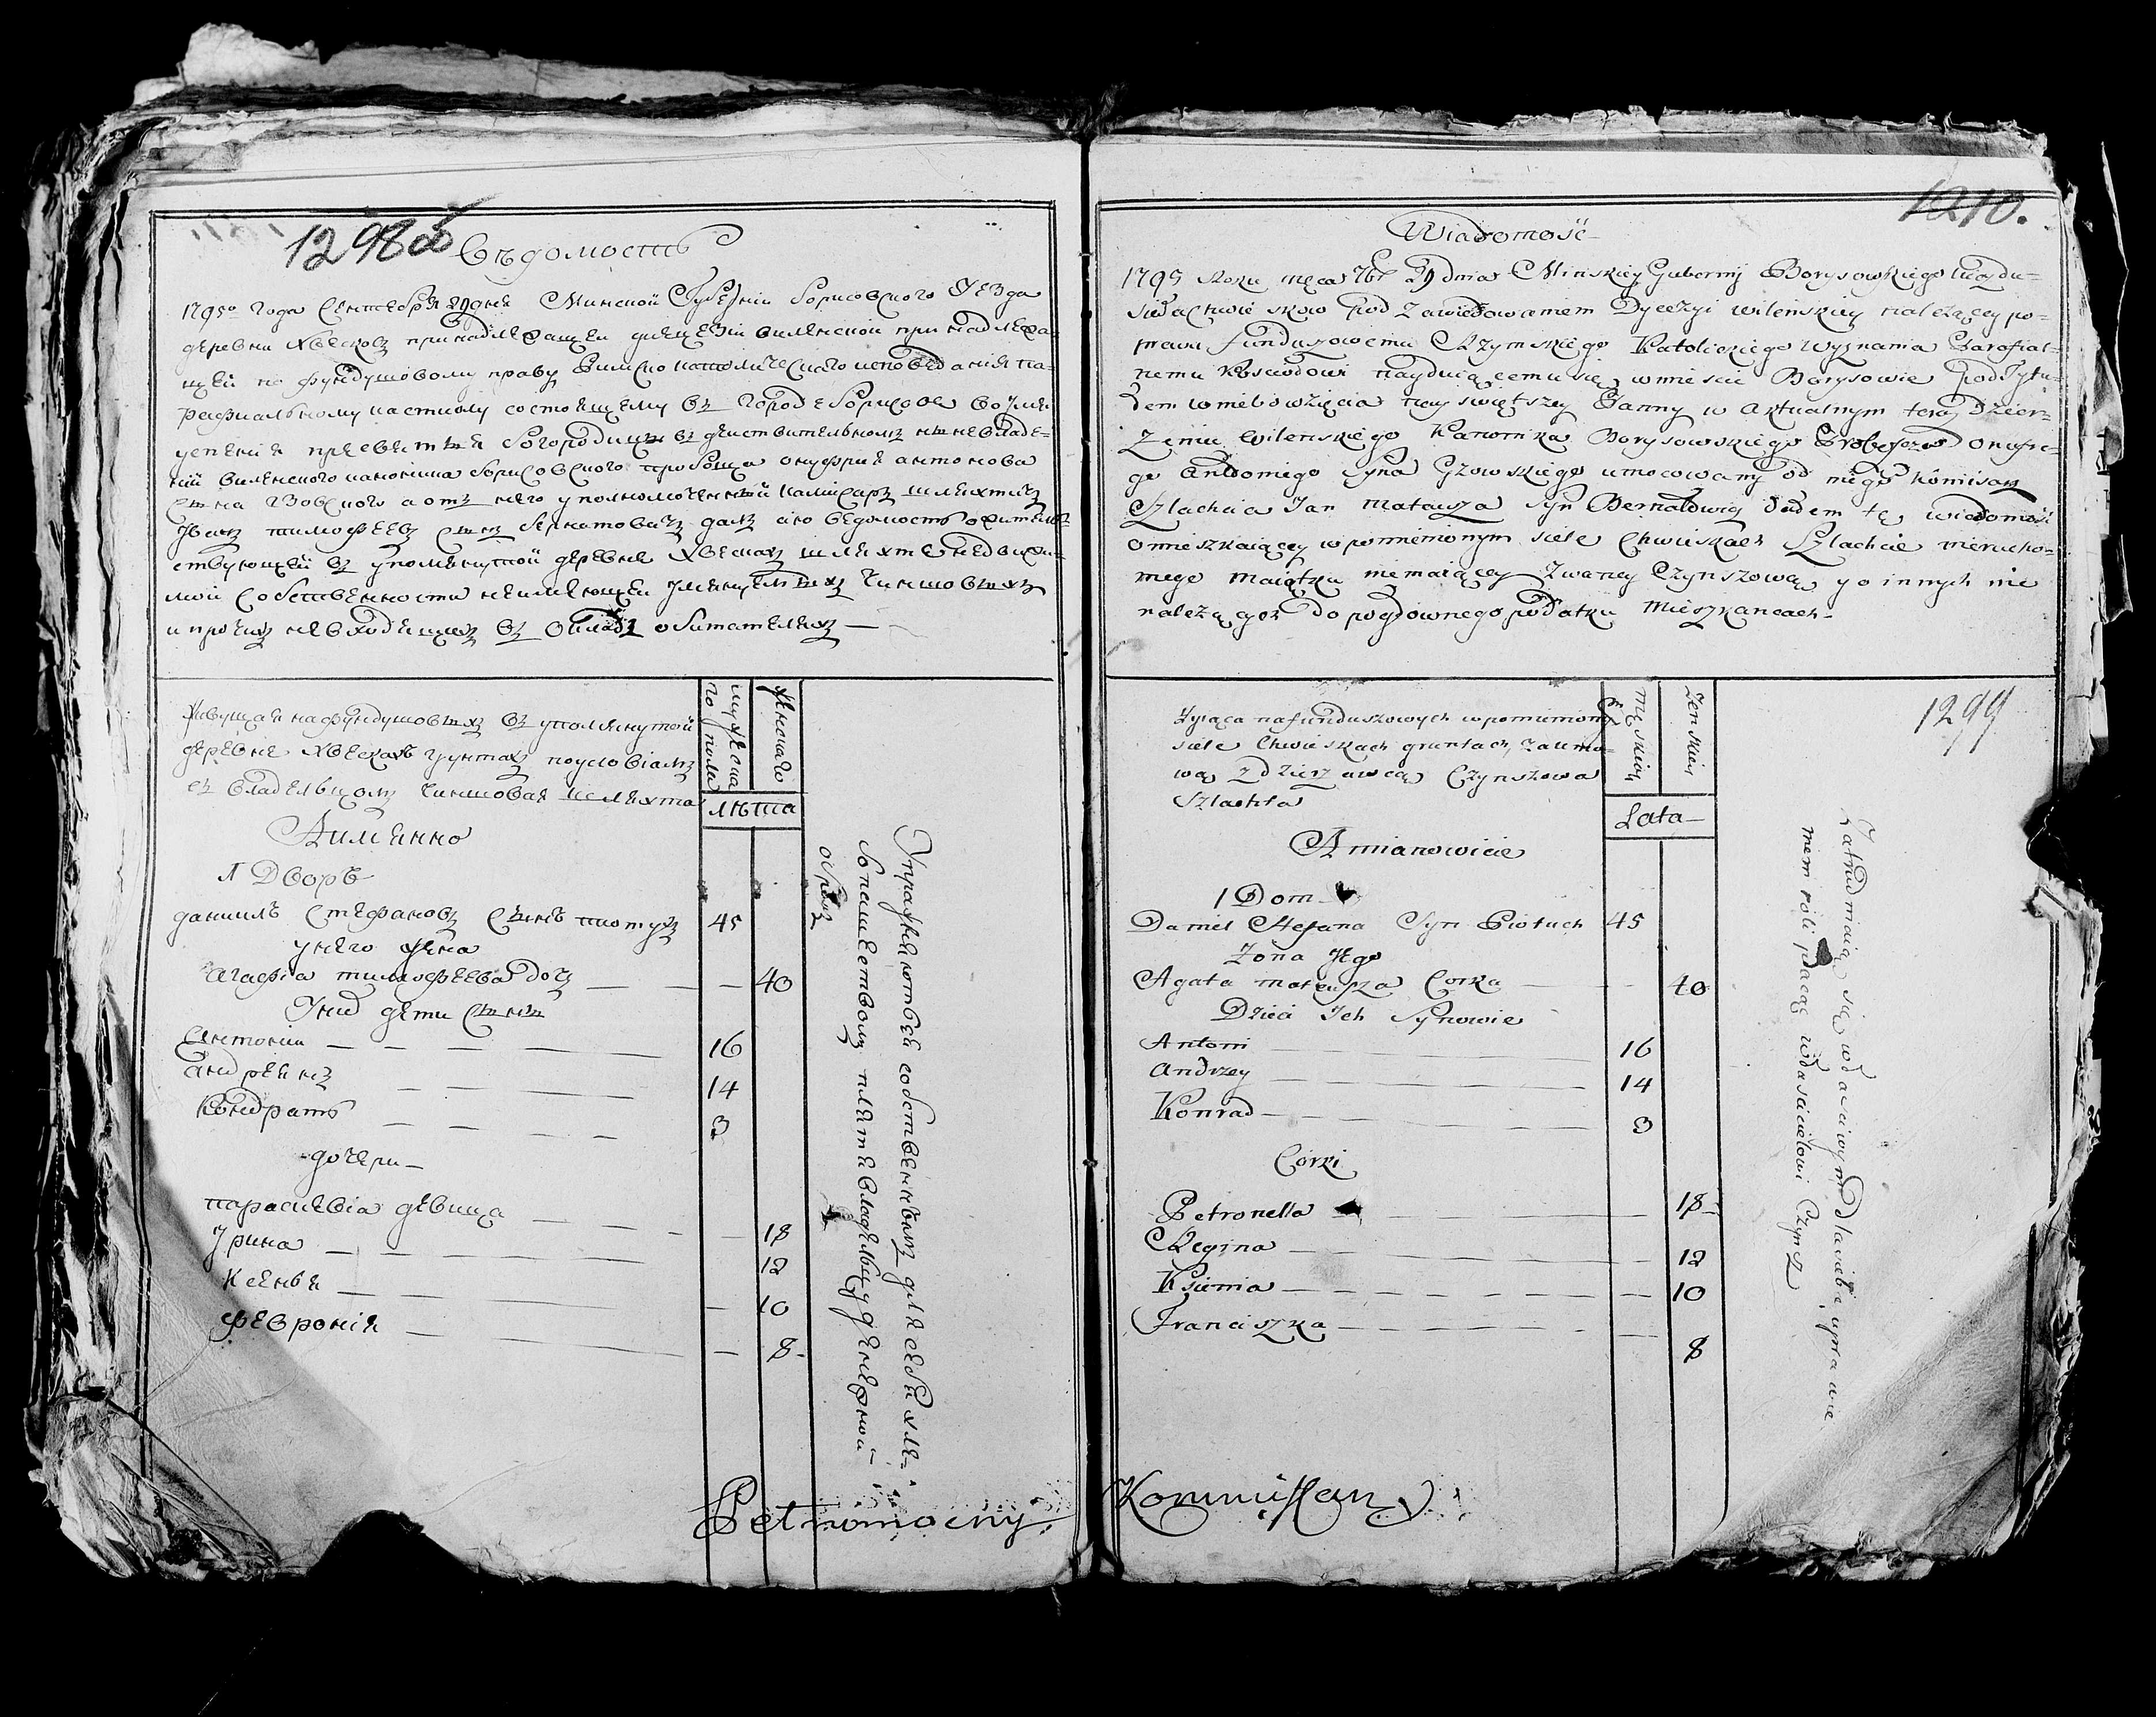 1298
Вѣдомость
1795º года Сентебря 29 дня Минской Губерніи Борисовского Уезда
деревни Хвесковъ принадлежащеи диецезіи виленской принадлежа-
щей по фундушовому праву Римско католического исповеданія па-
рафиальному костиолу состоящему въ городе Борисове во имя
успенія пресветыя Богородицы въ действительномъ ныне владе-
ніи виленского каноника борисовского пробоща онуфрия антонова
сына Гзовского а отъ него уполномоченный камисаръ шляхтичъ
Иванъ тимофеевъ сынъ бернатовичъ далъ сию ведомость о жител-
ствующей въ упомянутой деревне Хвесках шляхте недвижи-
мой собственности неимеющеи именуемыхъ чиншовыхъ
и прочихъ невходящихъ въ окладъ обитателяхъ —
живущая на фундушовыхъ въ упомянутой
деревне Хвескахъ грунтахъ по условіамъ
съ владельцомъ чиншовая шляхта
мужеска
го пола
женского
лѣта
Аимянно
1 Дворъ
даниилъ Стефановъ Сынъ пиотухъ 45
у него жена
агафіа тимофеева дочь — — — 40
У них дети Сыны
Антоніи — — — — — 16
андреянъ — — — — 14
Кондратъ — — — — 3
дочери —
параскевіа девица — — — — 18
Ирина — — — — 12
Ксенья — — — — 10
февронія — — — — 8 -
Упражняютвей собственнымъ для себя хле-
бопашествомъ платя владельцу денежной
оброкъ
Pełnomocny
1210.
Wiadomość
1795 Roku męca 7br 29 dnia Minskiey Gubernij Borysowskiego Uazdu
sioła Chwieskow pod zawiedowaniem Dyecezyi wilenskiey należącey po-
prawu funduszowemu Rzymskiego Katolickiego wyznania Parafial-
nemu Kosciołowi nayduiącemu się w mieście Borysowie pod Tytu-
łem wniebowzięcia nayświętszey Panny w aktualnym teraz Dzier-
żeniu wilenskiego Kanonika Borysowskiego Proboszcza Onufre-
go Antoniego syna Gzowskiego umocowany od niego komisarz
Szlachcic Jan Mateusza syn Bernatowicz dałem tę wiadomość
o mieszkaiącey w pomienionym siele Chwieskach Szlachcie nierucho-
mego maiątku niemaiącey zwaney Czynszową y o innych nie
należących do pogłownego podatku mieszkancach.
1299
Żyiąca na funduszowych w pomieniony
siele Chwieskach gruntach, za umo-
wą z dzierżawcą Czynszowa
Szlachta
Męskiey
Żenskiey
Lata —
A mianowicie
1 Dom
Daniel Stefana Syn Piotuch 45
Żona Jego
Agata mateusza Corka — — 40
Dzieci Ich Synowie
Antoni — — — — 16
Andrzey — — — — 14
Konrad — — — — 3
Corki
Petronella — — — — 18 -
Regina — — — — 12
Ksienia — — — — 10
Franciszka — — — — 8
Zatrudniaią się własciwym dla siebie uprawie
niem roli płacąc własicielowi Czynsz
Kommissarz